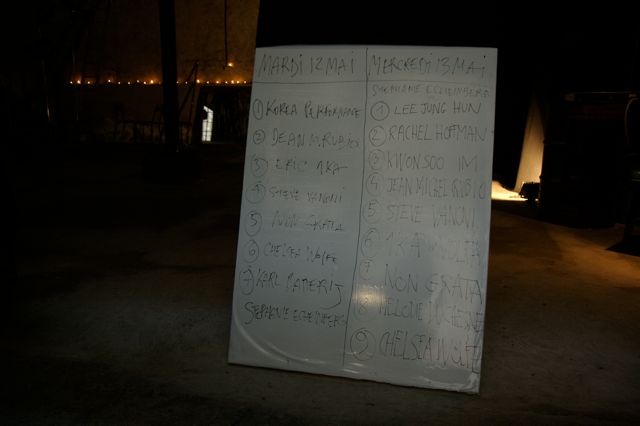 MARDI 12 MAI
① KOREA PERFORMANCE
② DEAN M. RUBIO
③ ERIC AKA
④ STEVE VANONI
⑤ NON GRATA
⑥ CHELSEA WOLFE
⑦ KARL
STEPHANIE
MERCREDI 13 MAI
① LEE JUNG HUN
② RACHEL HOFFMAN
③ KWONSOO IM
④ JEAN MICHEL RUBIO
⑤ STEVE VANONI
⑥
⑦ NON GRATA
⑧
⑨ CHELSEA WOLFE